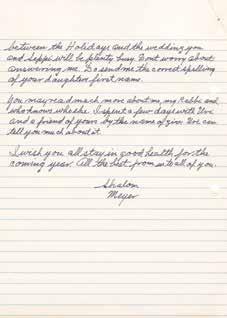 between the Holidays and the wedding you
and Seppi will be plenty busy. Dont worry about
answering me. Do send me the correct spelling
of your daughters first name.
You may read much more about me, my Rabbi and
who knows who she. I spent a few days with
and a friend of yours by the name of can
tell you much about it.
I wish you all stay in good health for the
coming year. All the best from us to all of you.
Shalom
Meyer